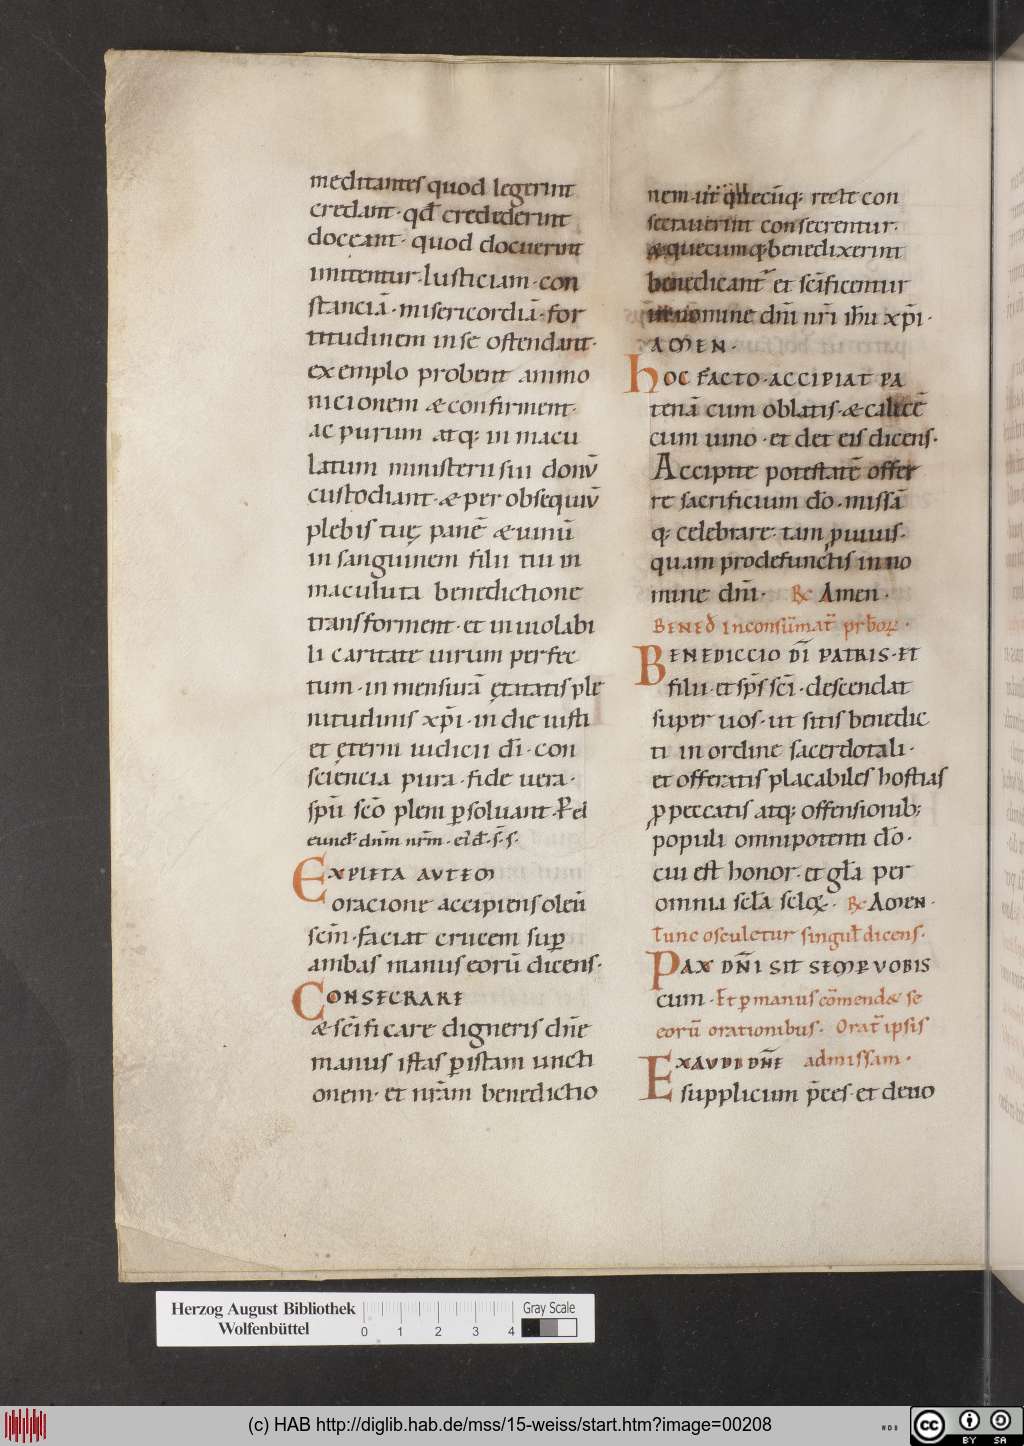 meditantes quod legerint
credant· qd̄ crediderint
doceant· quod docuerint
imitentur· Iusticiam· con
stanciā· misericordiā· for
titudinem in se ostendant·
exemplo probent ammo
nicionem & confirment·
ac purum atq; in macu
latum ministerii sui donū
custodiant· & per obsequiū
plebis tuę panē & uinū
in sanguinem filii tui in
maculata benedictione
transforment· et inuiolabi
li caritate uirum perfec
tum· in mensurā ętatatis ple
nitudinis xp̄i· in die iusti
et ęterni iudicii dī· con
sciencia pura· fide uera·
spū scō pleni ꝑsoluant·
eund̄ dnm̄ nrm̄·
EXPLETA AUTEM
oracione accipiens oleū
scm̄· faciat crucem suꝑ
ambas manus eorū dicens·
CONSECRARE
& scīficare digneris dn̄e
manus istas ꝑ istam uncti
onem· et nrām benedictio
nem· ut quecūq; recte con
secrauerint consecrentur·
& quecumq; benedixerint
benedicant̄ et scīficentur
in nomine dn̄i nrī ih̄u xp̄i·
AMEN·
HOC FACTO· ACCIPIAT PA
tenā cum oblatis· & calicē
cum uino· et det eis dicens·
Accipite potestatē offer
re sacrificium dō· missā
q; celebrare· tam ꝓ uiuis·
quam prodefunctis in no
mine dn̄i· R̄ Amen·
BENED̄ in consūmat̄ prb̄oꝝ·
BENEDICCIO DĪ PATRIS· ET
filii· et sp̄s scī· descendat
super uos· ut sitis benedic
ti in ordine sacerdotali·
et offeratis placabiles hostias
ꝓ peccatis atq; offensionib;
populi omnipotenti dō·
cui est honor· et glā per
omnia sclā scloꝝ· R̄ AMEN·
Tunc osculetur singul̄ dicens·
PAX DN̄I SIT SEMP VOBIS
cum· Et ꝑ manus cōmend& se
eorū orationibus· Orat̄ ipsis
EXAUDI DN̄E admissam·
supplicum p̄ces· et deuo
Herzog August Bibliothek
Wolfenbüttel
0 1 2 3 4
Gray Scale
(c) HAB http://diglib.hab.de/mss/15-weiss/start.htm?image=00208
cc BY SA